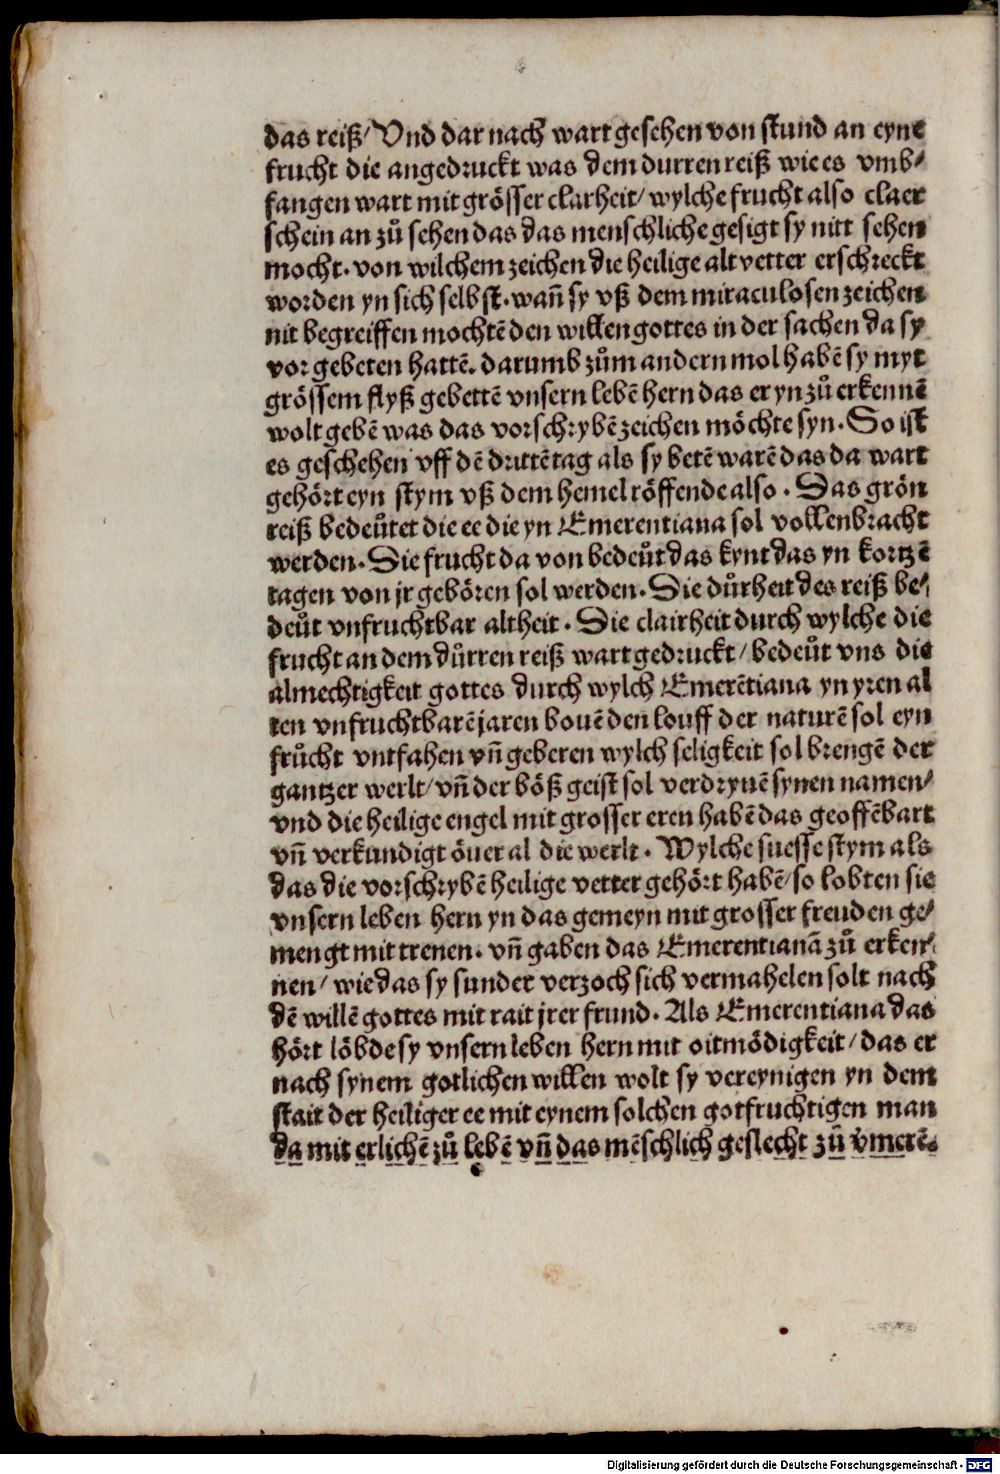 das reiß/ Vnd dar nach wart gesehen von stund an eyne
frucht die angedruckt was dem durren reiß wie es vmb⸗
fangen wart mit grösser clarheit/ wylche frucht also claer
schein an zů sehen das das menschliche gesigt sy nitt sehen
mocht. von wilchem zeichen die heilige altvetter erschreckt
worden yn sich selbst. wañ sy vß dem miraculosen zeichen
nit begreiffen mochtē den willen gottes in der sachen da sy
vor gebeten hattē. darumb zům andern mol habē sy myt
grössem flyß gebettē vnsern lebē hern das er yn zů erkennē
wolt gebē was das vorschrybē zeichen möchte syn. So ist
es geschehen vff dē drittē tag als sy betē warē das da wart
gehört eyn stym vß dem hemel röffende also. Das grön
reiß bedeůtet die ee die yn Emerentiana sol vollenbracht
werden. Die frucht da von bedeůt das kynt das yn kortzē
tagen von jr gebören sol werden. Die důrheit des reiß be⸗
deůt vnfruchtbar altheit. Die clairheit durch wylche die
frucht an dem důrren reiß wart gedruckt/ bedeůt vns die
almechtigkeit gottes durch wylch Emerētiana yn yren al
ten vnfruchtbarē jaren bouē den louff der naturē sol eyn
frůcht vntfahen vñ geberen wylch seligkeit sol brengē der
gantzer werlt/ vñ der böß geist sol verdryuē synen namen/
vnd die heilige engel mit grosser eren habē das geoffēbart
vñ verkundigt öuer al die werlt. Wylche suesse stym als
das die vorschrybē heilige vetter gehört habē/ so lobten sie
vnsern leben hern yn das gemeyn mit grosser freuden ge⸗
mengt mit trenen. vñ gaben das Emerentianā zů erken⸗
nen/ wie das sy sunder verzoch sich vermahelen solt nach
dē willē gottes mit rait jrer frund. Als Emerentiana das
hört löbde sy vnsern leben hern mit oitmödigkeit/ das er
nach synem gotlichen willen wolt sy vereynigen yn dem
stait der heiliger ee mit eynem solchen gotfruchtigen man
da mit erlichē zů lebē vñ das mēschlich geslecht zů v̄merē.
Digitalisierung gefördert durch die Deutsche Forschungsgemeinschaft - DFG